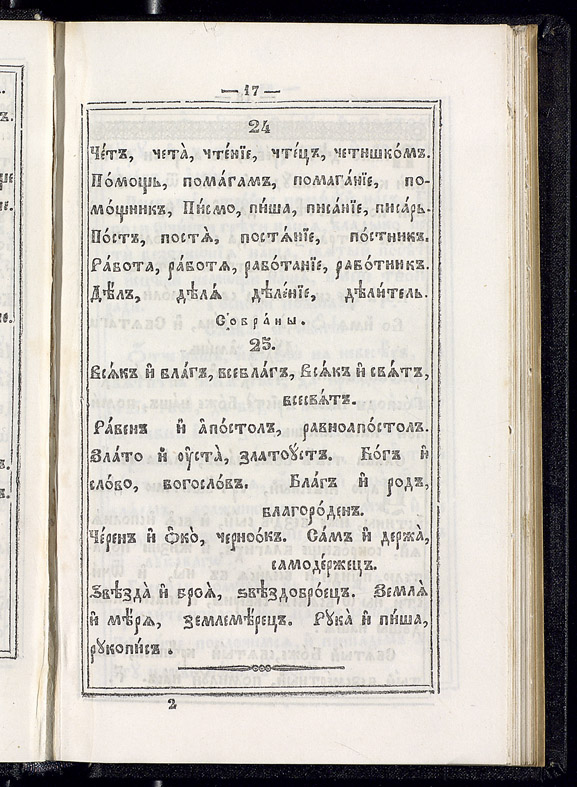 — 17 —
24
Че́тъ, чета̀, чте́нїе, чте́цъ, четишко́мъ.
По́мощь, пома́гамъ, помага́нїе, по-
мо́щникъ, Пи́смо, пи́ша, писа́нїе, писа́рь.
По́стъ, постѧ̀, постѧ́нїе, по́стникъ.
Ра́бота, ра́ботѧ, рабо́танїе, рабо́тникъ.
Дѣ́лъ, дѣ́лѧ дѣле́нїе, дѣли́тель.
Собра́ны.
25.
Всѧ́къ и҆ бла́гъ, всебла́гъ, Всѧ́къ и҆ свѧ́тъ,
всесвѧ́тъ.
Ра́венъ и҆ а҆по́столъ, равноапо́столъ.
Зла́то и҆ оу҆ста̀, златоу́стъ. Бо́гъ и҆
сло́во, богосло́въ. Бла́гъ и҆ родъ,
благоро́денъ.
Че́ренъ и҆ ѻ҆ко̀, черноо́къ. Са́мъ и҆ держа̀,
самодержецъ.
Ѕвѣзда̀ и҆ броѧ̀, ѕвѣздобро́ецъ. Землѧ̀
и҆ мѣ́рѧ, землемѣ́рецъ. Рука̀ и҆ пи́ша,
рꙋкопи́съ.
2